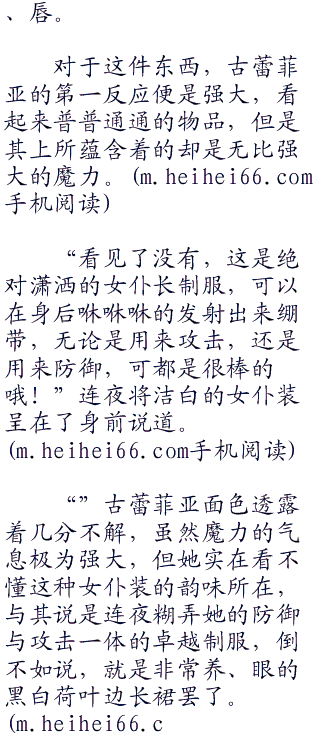 、唇。
对于这件东西，古蕾菲
亚的第一反应便是强大，看
起来普普通通的物品，但是
其上所蕴含着的却是无比强
大的魔力。(m.heihei66.com
手机阅读)
“看见了没有，这是绝
对潇洒的女仆长制服，可以
在身后咻咻咻的发射出来绷
带，无论是用来攻击，还是
用来防御，可都是很棒的
哦！”连夜将洁白的女仆装
呈在了身前说道。
(m.heihei66.com手机阅读)
“”古蕾菲亚面色透露
着几分不解，虽然魔力的气
息极为强大，但她实在看不
懂这种女仆装的韵味所在，
与其说是连夜糊弄她的防御
与攻击一体的卓越制服，倒
不如说，就是非常养、眼的
黑白荷叶边长裙罢了。
(m.heihei66.c